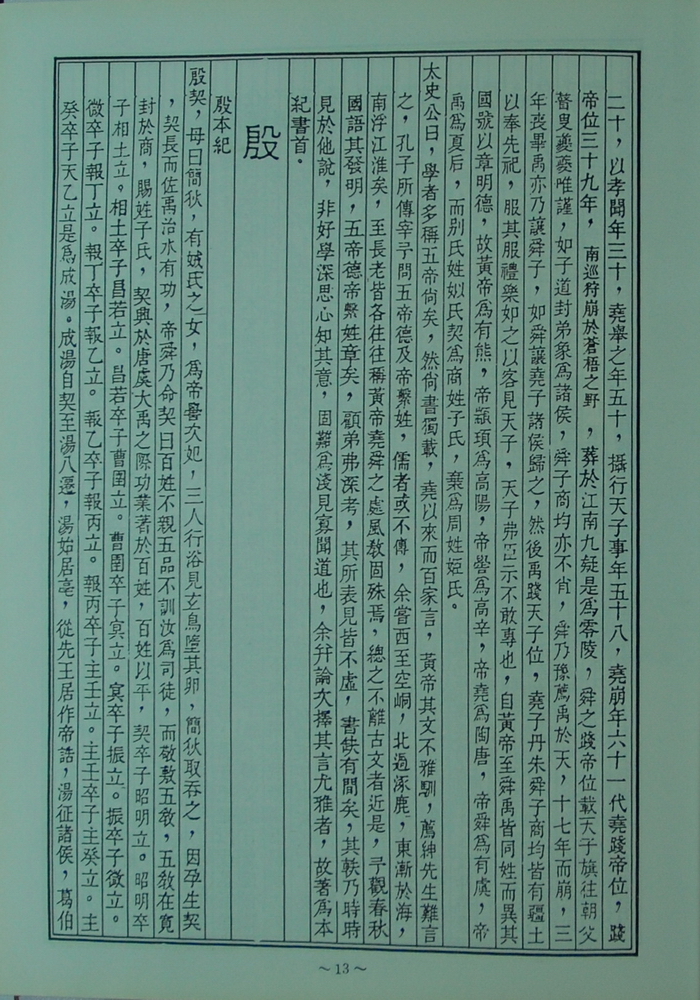 二十，以孝聞年三十，堯舉之年五十，攝行天子事年五十八，堯崩年六十一代堯踐帝位，踐
帝位三十九年，南巡狩崩於蒼梧之野，葬於江南九疑是爲零陵，舜之踐帝位載天子旗往朝父
瞽叟夔夔唯謹，如子道封弟象爲諸侯，舜子商均亦不肖，舜乃豫薦禹於天，十七年而崩，三
年喪畢禹亦乃讓舜子，如舜讓堯子諸侯歸之，然後禹踐天子位，堯子丹朱舜子商均皆有疆土
以奉先祀，服其服禮樂如之以客見天子，天子弗臣示不敢專也，自黃帝至舜禹皆同姓而異其
國號以章明德，故黃帝爲有熊，帝顓頊爲高陽，帝嚳爲高辛，帝堯爲陶唐，帝舜爲有虞，帝
禹爲夏后，而别氏姓姒氏契爲商姓子氏，棄爲周姓姬氏。
太史公曰，學者多稱五帝尙矣，然尙書獨載，堯以來而百家言，黃帝其文不雅馴，薦紳先生難言
之，孔子所傳宰予問五帝德及帝繫姓，儒者或不傳，余嘗西至空峒，北過涿鹿，東漸於海，
南浮江淮矣，至長老皆各往往稱黃帝堯舜之處風敎固殊焉，總之不離古文者近是，予觀春秋
國語其發明，五帝德帝繫姓章矣，顧弟弗深考，其所表見皆不虛，書缺有間矣，其軼乃時時
見於他說，非好學深思心知其意，固難爲淺見寡聞道也，余幷論次擇其言尤雅者，故著爲本
紀書首。
殷
殷本紀
殷契，母曰簡狄，有娀氏之女，爲帝嚳次妃，三人行浴見玄鳥墮其卵，簡狄取吞之，因孕生契
，契長而佐禹治水有功，帝舜乃命契曰百姓不親五品不訓汝爲司徒，而敬敷五敎，五敎在寬
封於商，賜姓子氏，契興於唐虞大禹之際功業著於百姓，百姓以平，契卒子昭明立。昭明卒
子相土立。相土卒子昌若立。昌若卒子曹圉立。曹圉卒子冥立。冥卒子振立。振卒子微立。
微卒子報丁立。報丁卒子報乙立。報乙卒子報丙立。報丙卒子主壬立。主壬卒子主癸立。主
癸卒子天乙立是爲成湯。成湯自契至湯八遷，湯始居亳，從先王居作帝誥，湯征諸侯，葛伯
～13～